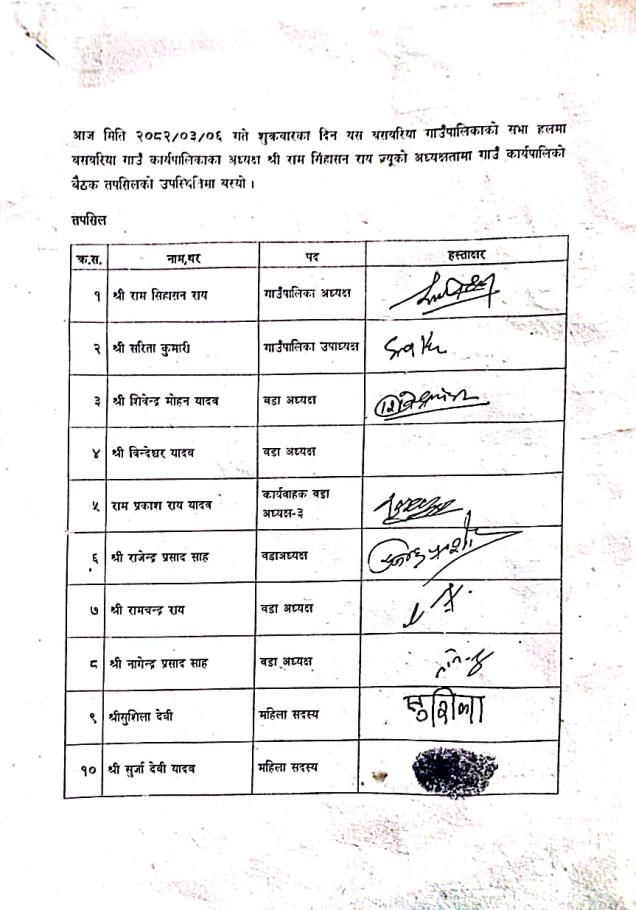 आज मिति २०८२/०३/०६ गते शुक्रबारका दिन यस बसबरिया गाउँपालिकाको सभा हलमा
बसबरिया गाउँ कार्यपालिकाका अध्यक्ष श्री राम सिंहासन राय ज्यूको अध्यक्षतामा गाउँ कार्यपालिको
बैठक तपसिलको उपस्थितिमा बस्यो ।
तपसिल
क्र.स. नाम,थर पद हस्ताक्षर
१ श्री राम सिहासन राय गाउँपालिका अध्यक्ष
२ श्री सरिता कुमारी गाउँपालिका उपाध्यक्ष
३ श्री शिवेन्द्र मोहन यादव वडा अध्यक्ष
४ श्री विन्देश्वर यादव वडा अध्यक्ष
५ राम प्रकाश राय यादव कार्यवाहक वडा
अध्यक्ष-३
६ श्री राजेन्द्र प्रसाद साह वडाअध्यक्ष
७ श्री रामचन्द्र राय वडा अध्यक्ष
८ श्री नागेन्द्र प्रसाद साह वडा अध्यक्ष
९ श्रीसुशिला देवी महिला सदस्य सुशिला
१० श्री सुर्जा देवी यादव महिला सदस्य